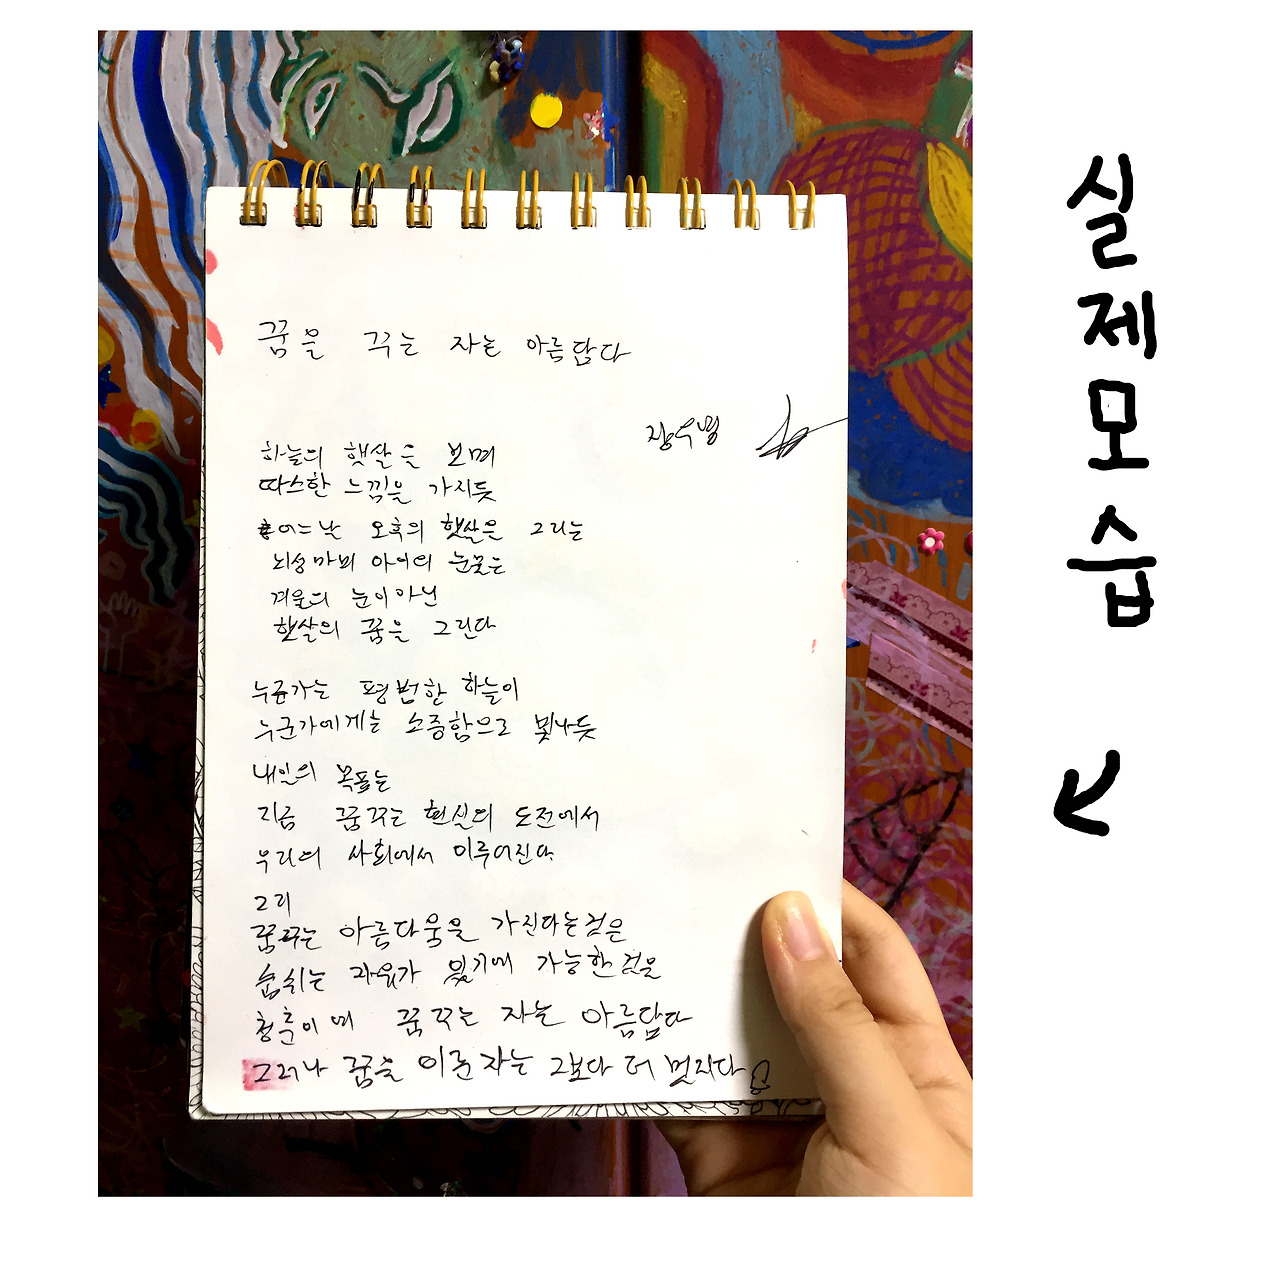 꿈을 꾸는 자는 아름답다
장수명
하늘의 햇살을 보며
따스한 느낌을 가지듯
어느날 오후의 햇살을 그리는
뇌성마비 아이의 눈꽃은
겨울의 눈이아닌
햇살의 꿈을 그린다
누군가는 평범한 하늘이
누군가에게는 소중함으로 빛나듯
내일의 목표는
지금 꿈꾸는 현실의 도전에서
우리의 사회에서 이루어진다
그리
꿈꾸는 아름다움을 가진다는것은
숨쉬는 자유가 있기에 가능한것을
청춘이여 꿈꾸는 자는 아름답다
그러나 꿈을 이룬자는 그보다 더 멋지다
실제모습